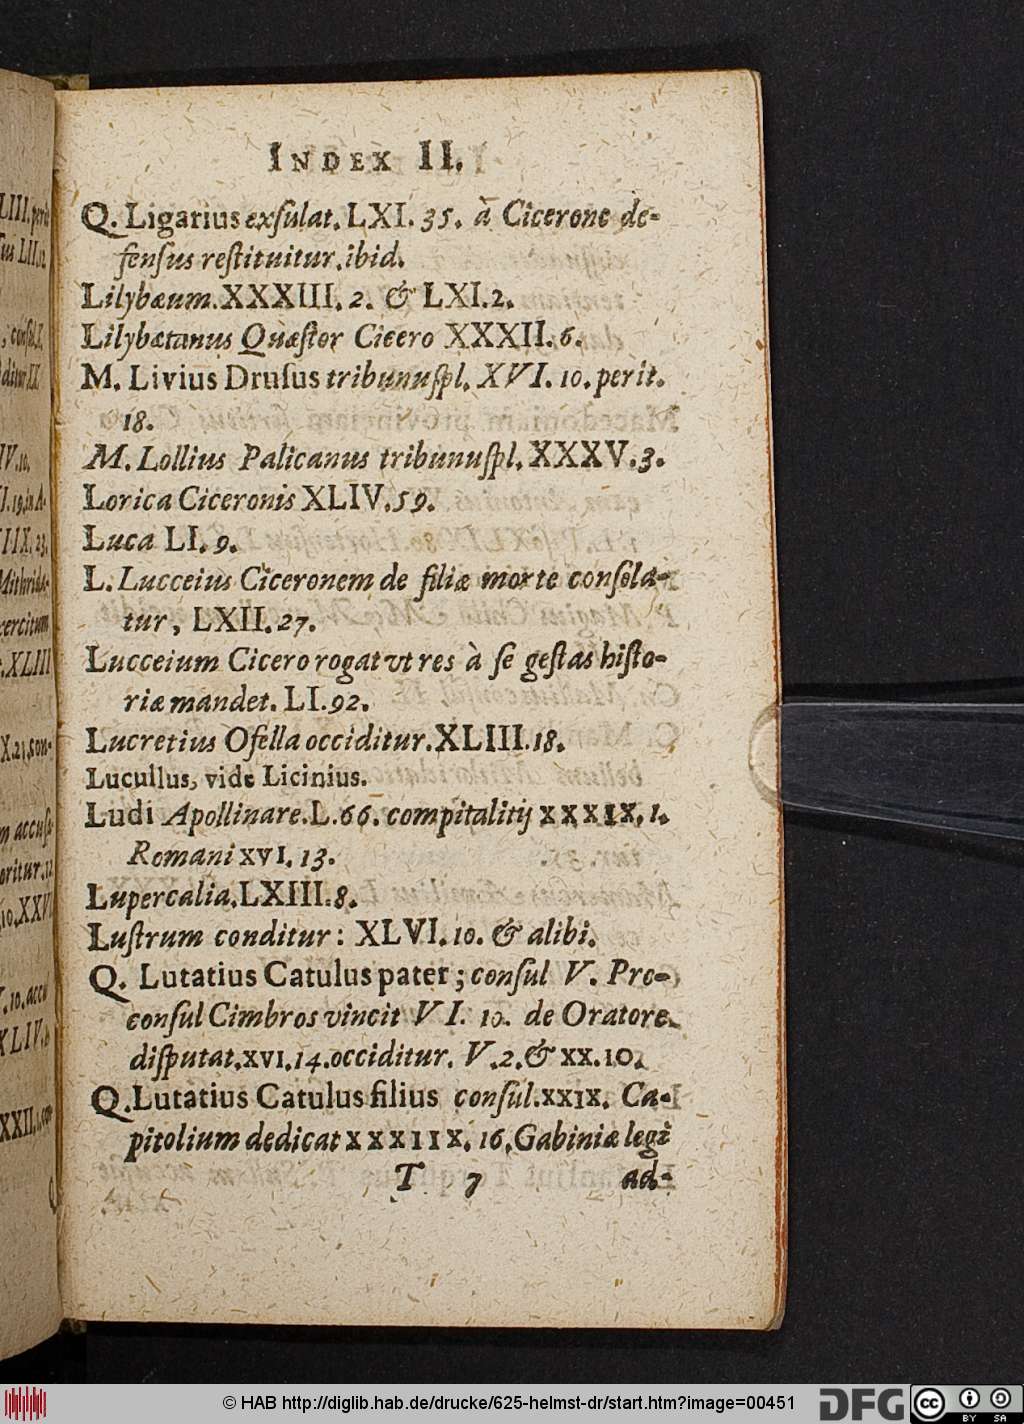 INDEX II.
Q. Ligarius exſulat. LXI. 35. à Cicerone de-
fenſus reſtituitur. ibid.
Lilybæum. XXXIII. 2. & LXI. 2.
Lilybætanus Quæſtor Cicero XXXII. 6.
M. Livius Druſus tribunuſpl. XVI. 10. perit.
18.
M. Lollius Palicanus tribunuſpl. XXXV. 3.
Lorica Ciceronis XLIV. 59.
Luca LI. 9.
L. Lucceius Ciceronem de filiæ morte conſola-
tur, LXII. 27.
Lucceium Cicero rogat vt res à ſe geſtas hiſto-
riæ mandet. LI. 92.
Lucretius Ofella occiditur. XLIII. 18.
Lucullus, vide Licinius.
Ludi Apollinare. L. 66. compitalitij XXXIX. 1.
Romani XVI. 13.
Lupercalia. LXIII. 8.
Luſtrum conditur: XLVI. 10. & alibi.
Q. Lutatius Catulus pater; conſul V. Pro-
conſul Cimbros vincit VI. 10. de Oratore
diſputat. XVI. 14. occiditur. V. 2. & XX. 10.
Q. Lutatius Catulus filius conſul. XXIX. Ca-
pitolium dedicat XXXIIX. 16. Gabiniæ legi
T 7 ad-
© HAB http://diglib.hab.de/drucke/625-helmst-dr/start.htm?image=00451
DFG
cc BY SA